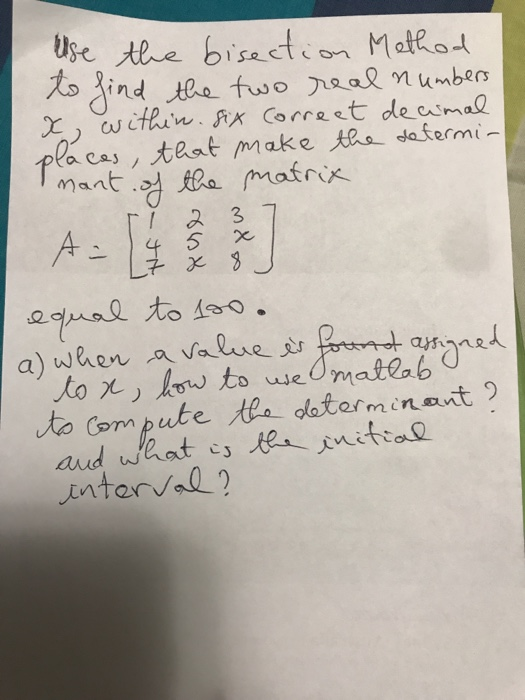 Use the bisection Method
to find the two real numbers
x, within six correct decimal
places, that make the determi-
nant of the matrix
A = [1 2 3
4 5 x
7 x 8]
equal to 100.
a) when a value is found assigned
to x, how to use matlab
to compute the determinant?
and what is the initial
interval?